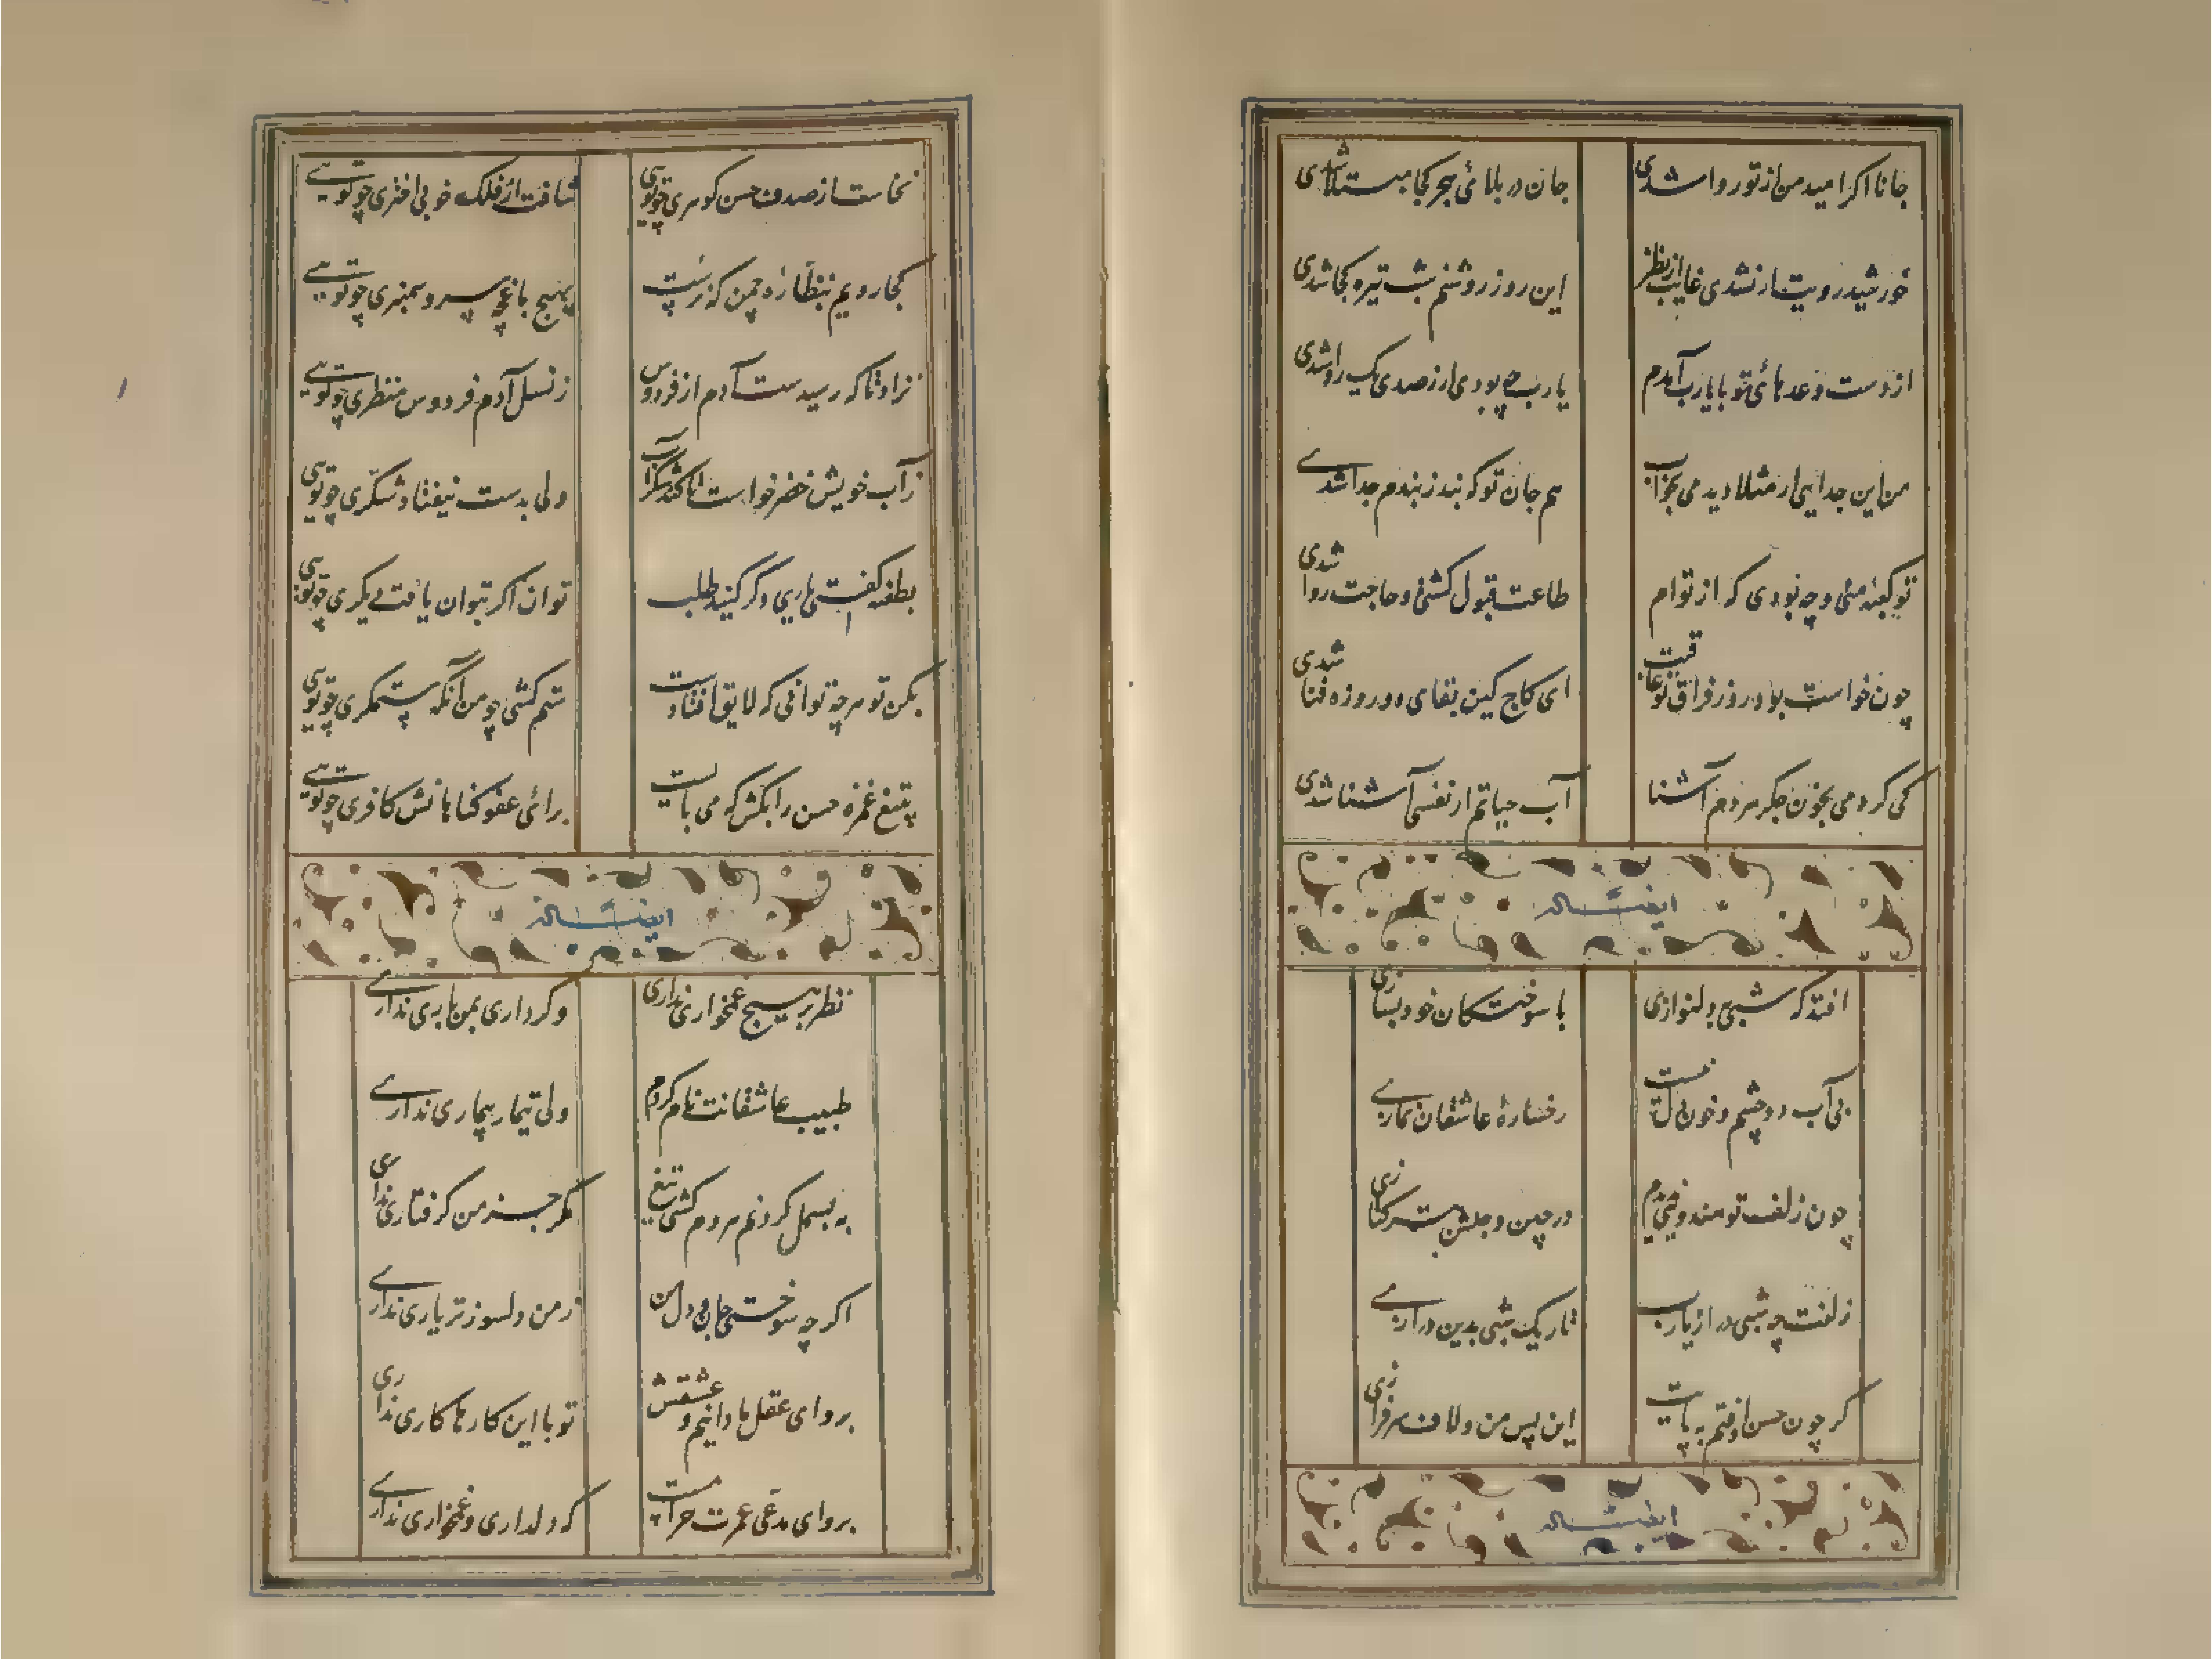 جانا اگر امید من از تو روا شدی
جان در بلائی هجر کجا مبتلا شدی
خورشید رویت ار نشدی غایب از نظر
این روز روشنم شب تیره کجا شدی
از دست وعدهائی تو با یارب آمدم
یارب چه بودی ار ز صدی یک روا شدی
من این جدایی ار مثلا دیدمی بخواب
هم جان تو که بند ز بندم جدا شدے
تو کعبه منی و چه بودی که از توام
طاعت قبول گشتی و حاجت روا شدی
چون خواست بود روز فراق تو عاقبت
ای کاج کین بقای دو روزه فنا شدی
کی کردمی بخون جگر مردم آشنا
آب حیاتم ار نفسی آشنا شدی
ایضاً له
افتد که شبی بدلنوازی
با سوختگان خود بسازی
بی آب دو چشم و خون دل نیست
رخسارهٔ عاشقان نمازے
چون زلف تو هندویی ندیدم
در چین و حبش بترکتازی
زلفت چو شبی دراز یارب
تاریک شبی بدین درازے
گر چون حسن اوفتم به پایت
این پس من و لاف سرفرازی
ایضاً له
نخاست از صدف حسن گوهری چو تویی
نتافت از فلک خوبی اختری چو تویے
کجا رویم بنظارهٔ چمن که نرست
بهیچ باغچه سرو سمنبری چو تویے
نزاد تا که رسیدست آدم از فردوس
ز نسل آدم فردوس منظری چو تویے
ز آب خویش خضر خواست تا کند شکر آب
ولی بدست نیفتاد شکّری چو تویی
بطعنه گفتی یاری دگر کنید طلب
توان اگر بتوان یافت دیگری چو تویی
بکن تو هر چه توانی که لایق افتادست
ستم کشی چو من آنگه ستمگری چو تویی
بتیغ غمزه حسن را بکش که می بایست
برائی عفو گناهانش کافری چو تویے
ایضاً له
نظر بر هیچ غمخواری نداری
وگر داری بمن باری نداری
طبیب عاشقانت نام کردم
ولی تیمار بیماری ندارے
به بسمل کردنم هر دم کشی تیغ
مگر جز من گرفتاری نداری
اگر چه سوختی جان و دل من
ز من دلسوزتر یاری ندارے
برو ای عقل ما دانیم و عشقش
تو با این کارها کاری نداری
برو ای مدعی عمرت حرامست
که دلداری و غمخواری ندارے